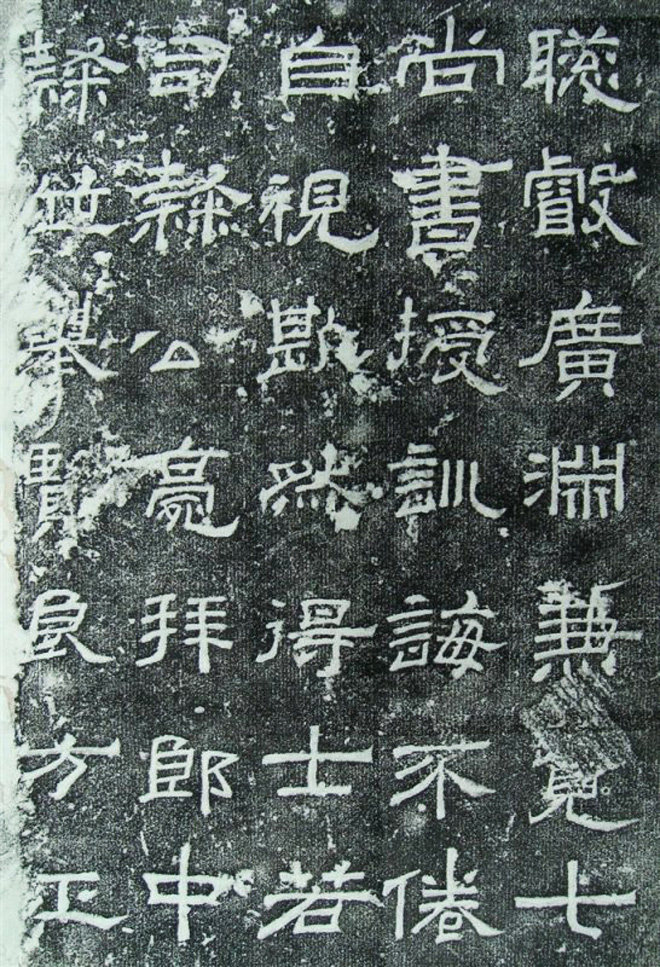 聰叡廣淵兼覽七
尚書授訓誨不倦
自視然得士若
司隸公亮拜郎中
隸世舉賢良方正